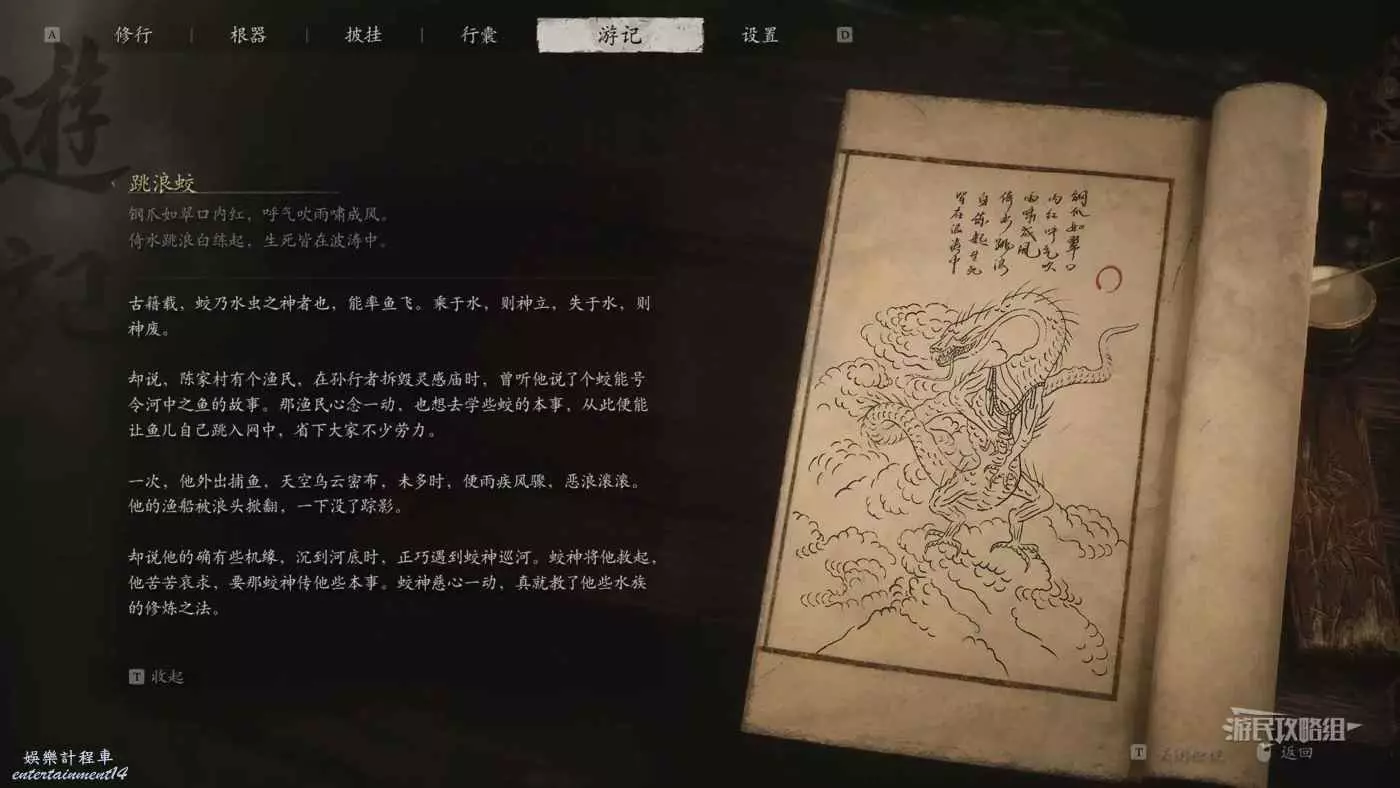 A 修行 根器 披挂 行囊 游记 设置 D
遊記
跳浪蛟
钢爪如翠口内红，呼气吹雨啸成风。
倚水跳浪白练起，生死皆在波涛中。
古籍载，蛟乃水虫之神者也，能率鱼飞。乘于水，则神立，失于水，则
神废。
却说，陈家村有个渔民，在孙行者拆毁灵感庙时，曾听他说了个蛟能号
令河中之鱼的故事。那渔民心念一动，也想去学些蛟的本事，从此便能
让鱼儿自己跳入网中，省下大家不少劳力。
一次，他外出捕鱼，天空乌云密布，未多时，便雨疾风骤、恶浪滚滚。
他的渔船被浪头掀翻，一下没了踪影。
却说他的确有些机缘，沉到河底时，正巧遇到蛟神巡河。蛟神将他救起，
他苦苦哀求，要那蛟神传他些本事。蛟神慈心一动，真就教了他些水族
的修炼之法。
T 收起
钢爪如翠口
内红呼气吹
雨啸成风
倚水跳浪
白练起生死
皆在波涛中
游民攻略组
T
返回
娛樂計程車
entertainment14